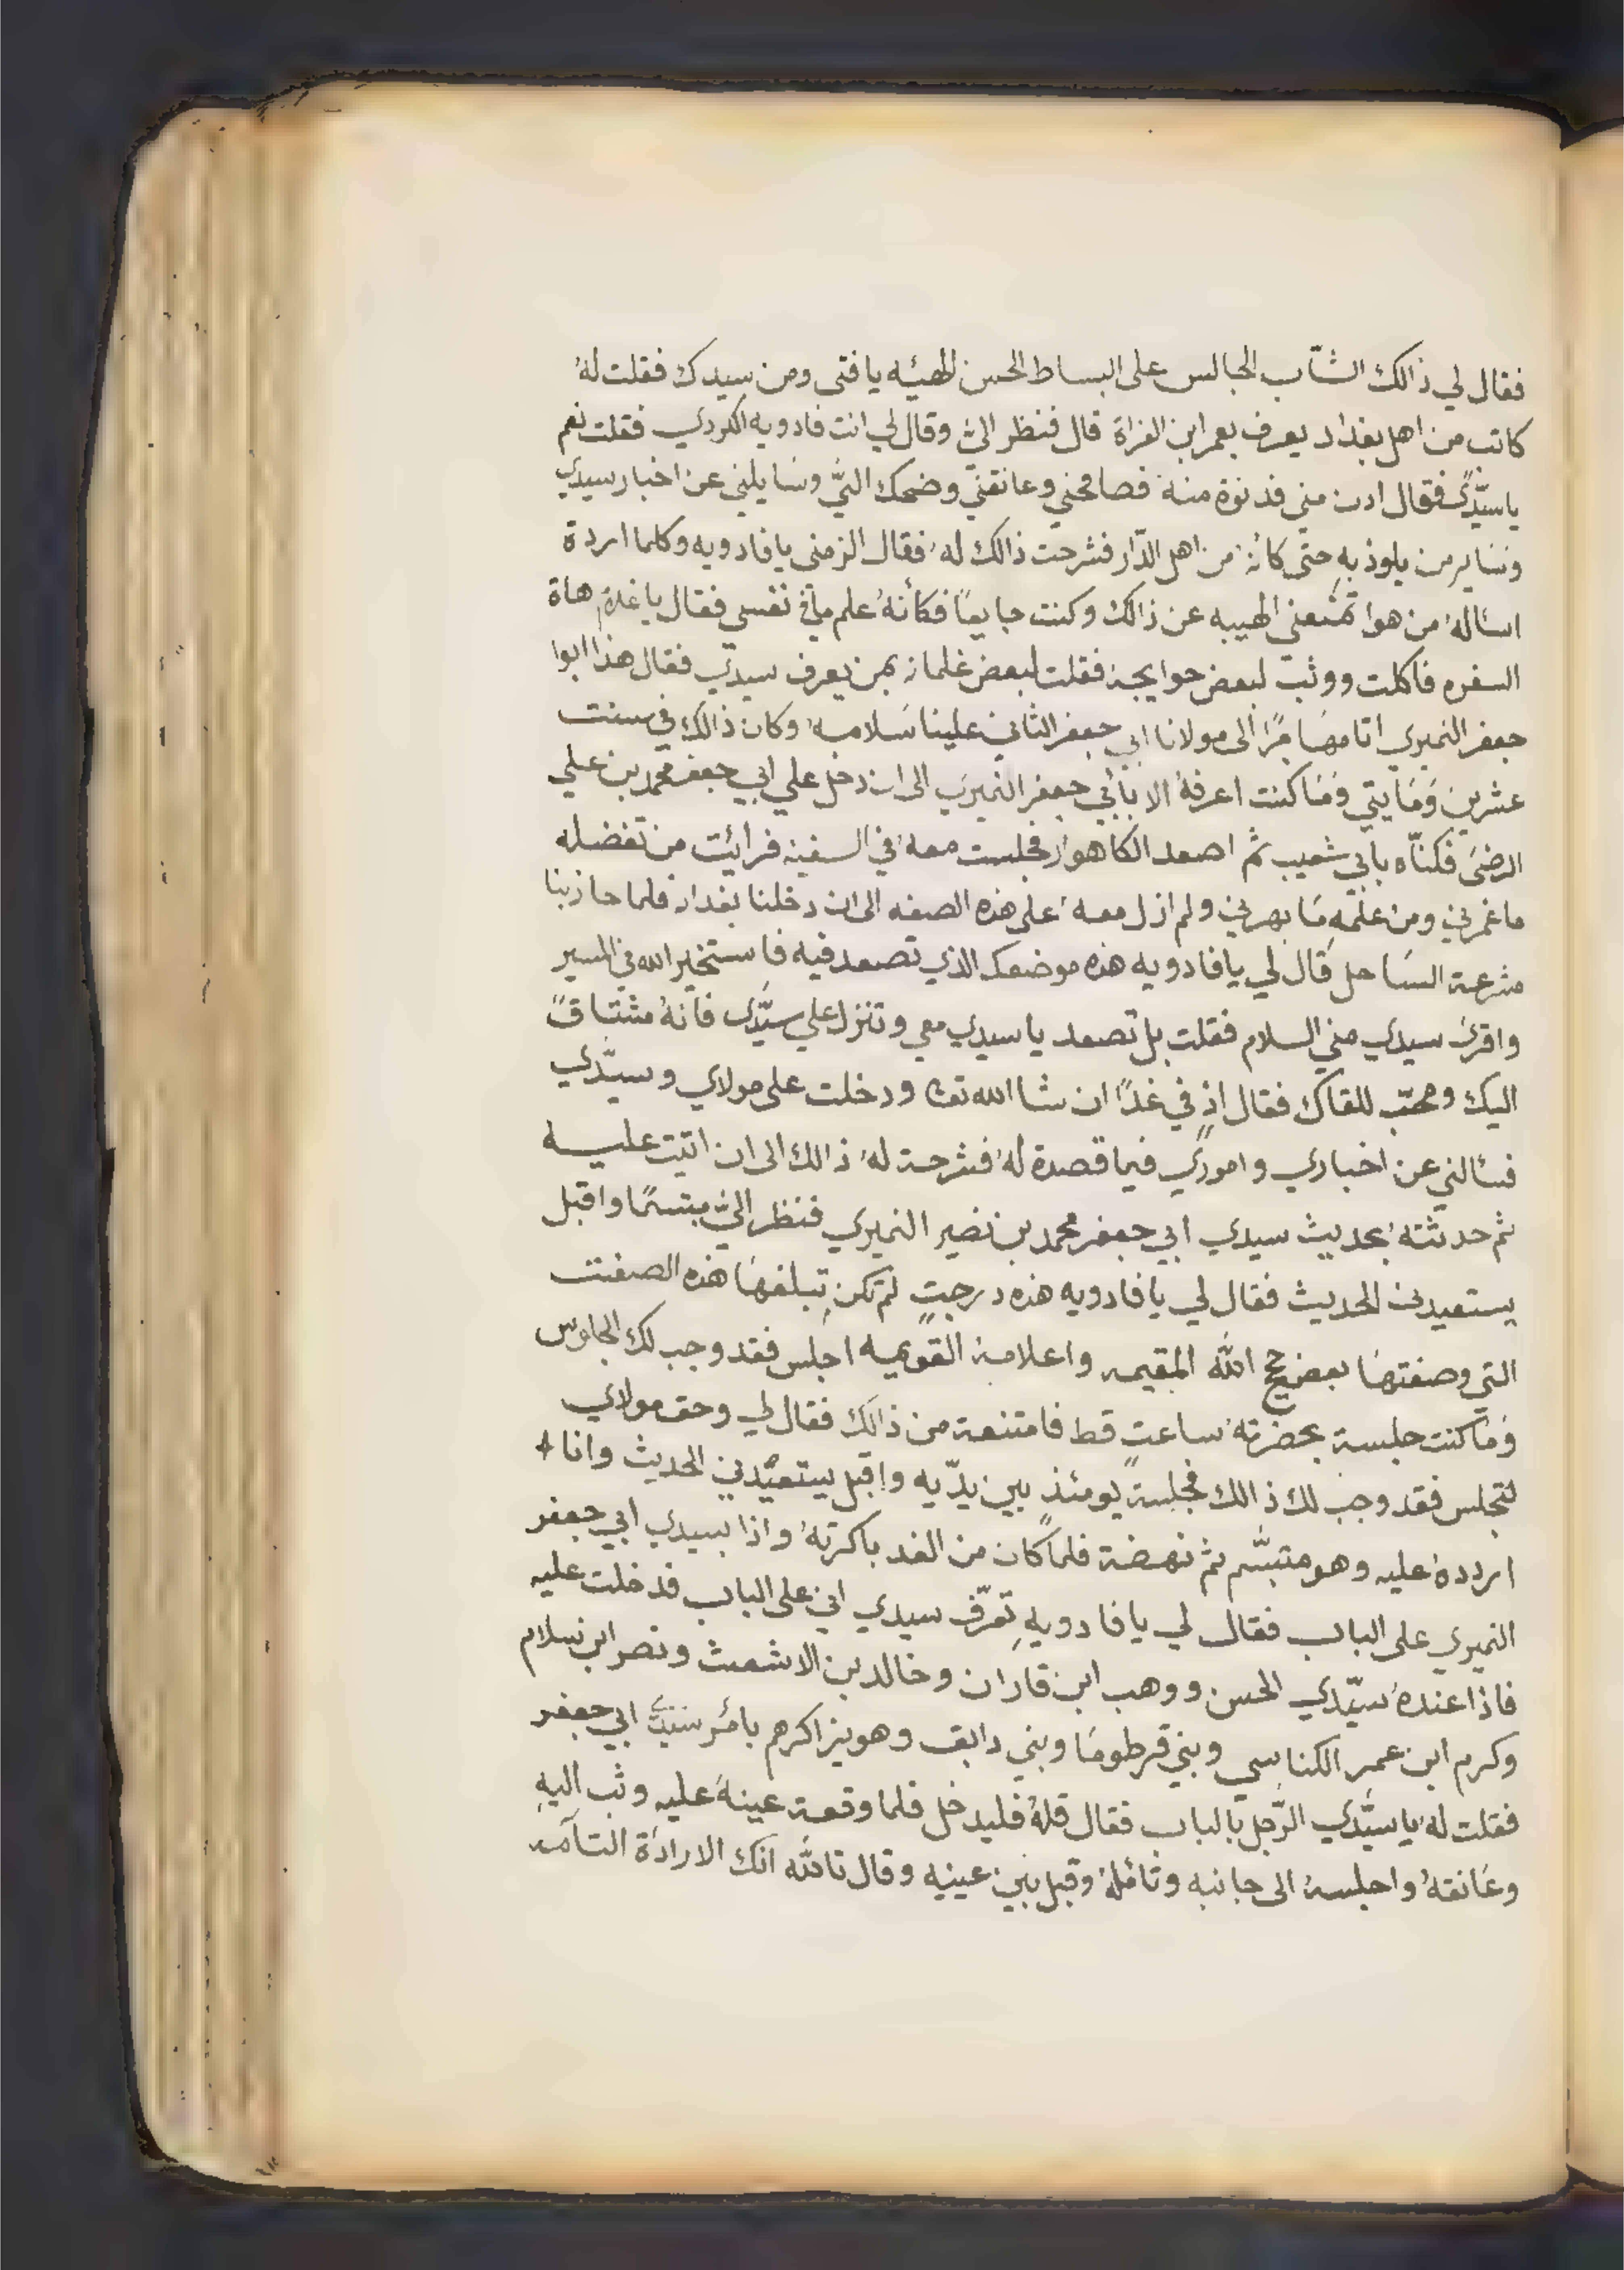 فقال لي ذالك الشّاب الجالس على البساط الحسن الهيئه يا فتى ومن سيدك فقلت لهُ
كاتب من اهل بغداد يعرف بعمر ابن الفراة قال فنظر اليّ وقال لي انت فادويه الكردي فقلت نعم
يا سيّدي فقال ادن مني فدنوة منهُ فصافحني وعانقني وضحك اليَّ وسَايلني عن اخبار سيدي
وسَاير من يلوذ بهِ حتى كانهُ من اهل الدّار فشرحت ذالك لهُ فقال الزمني يا فادويه وكلما اردة
اساله من هوا تمنعني الهيبه عن ذالك وكنت جايعاً فكأنهُ علم ما في نفسي فقال يا غلام هاة
السفره فاكلت ووثب لبعض حوايجه فقلت لبعض غلمانه بمن يعرف سيدي فقال هذا ابوا
جعفر النميري اتا مهَاجرًا الى مولانا ابي جعفر الثاني علينا سَلامهُ وكان ذالك في سنت
عشرين وَمَايتي وَمَا كنت اعرفهُ الا بابي جعفر النميري الى ان دخل علي ابي جعفر محمد بن علي
الرضىَ فكنّاه بابي شعيب ثم اصعد الكاهوار فجلست معهُ في السفينه فرائت من تفضله
ما غمرني ومن علمِهِ مَا بهرني ولم ازل معهُ على هذه الصفه الى ان دخلنا بغداد فلما حازينا
مشرعة السَاحل قال لي يا فادويه هذه موضعك الذي تصعد فيه فاستخير الله في المسير
واقرئ سيدي مني السلام فقلت بل تصعد يا سيدي معي وتنزل علي سيّدي فانهُ مشتاقً
اليك ومحبّ للقاك فقال اذٍ في غدًا ان شا الله تعا ودخلت على مولاي وسيّدي
فسالني عن اخباري واموري فيما قصدة لهُ فشرحة لهُ ذالك الى ان اتيت عليه
ثم حدثتهُ بحديث سيدي ابي جعفر محمد بن نضير النميري فنظر اليَّ مبتسمًا واقبل
يستعيدني الحديث فقال لي يا فادويه هذه درجتٍ لم تكن تبلغهَا هذه الصفت
التي وصفتهَا بعض حجج الله المقيمه واعلامهُ القويمه اجلس فقد وجب لك الجلوس
وَما كنت جلسة بحضرتهُ ساعتٍ قط فامتنعة من ذالك فقال لي وحق مولاي
لتجلس فقد وجب لك ذالك فجلسةً يومئذ بين يدّيه واقبل يستعيدني الحديث وانا
اردده عليه وهو متبسّم ثم نهضة فلما كان من الغد باكرتهُ واذا بسيدي ابي جعفر
النميري على الباب فقال لي يا فادويهِ تعرّف سيدي اني على الباب فدخلت عليه
فاذا عندهُ سيّدي الحسن ووهب ابن قاران وخالد بن الاشعث ونصر ابن سلام
وكرم ابن عمر الكناسي وبني قرطومَا وبني دابق وهو يزاكرهم بامر سَيدي ابي جعفر
فقلت لهُ يا سيّدي الرّجل بالباب فقال قلهُ فليدخل فلما وقعة عينهُ عليه وثب اليهِ
وعَانقهُ واجلسهُ الى جانبه وتاملهُ وقبل بين عينيه وقال تالله انك الارادَة التآمه